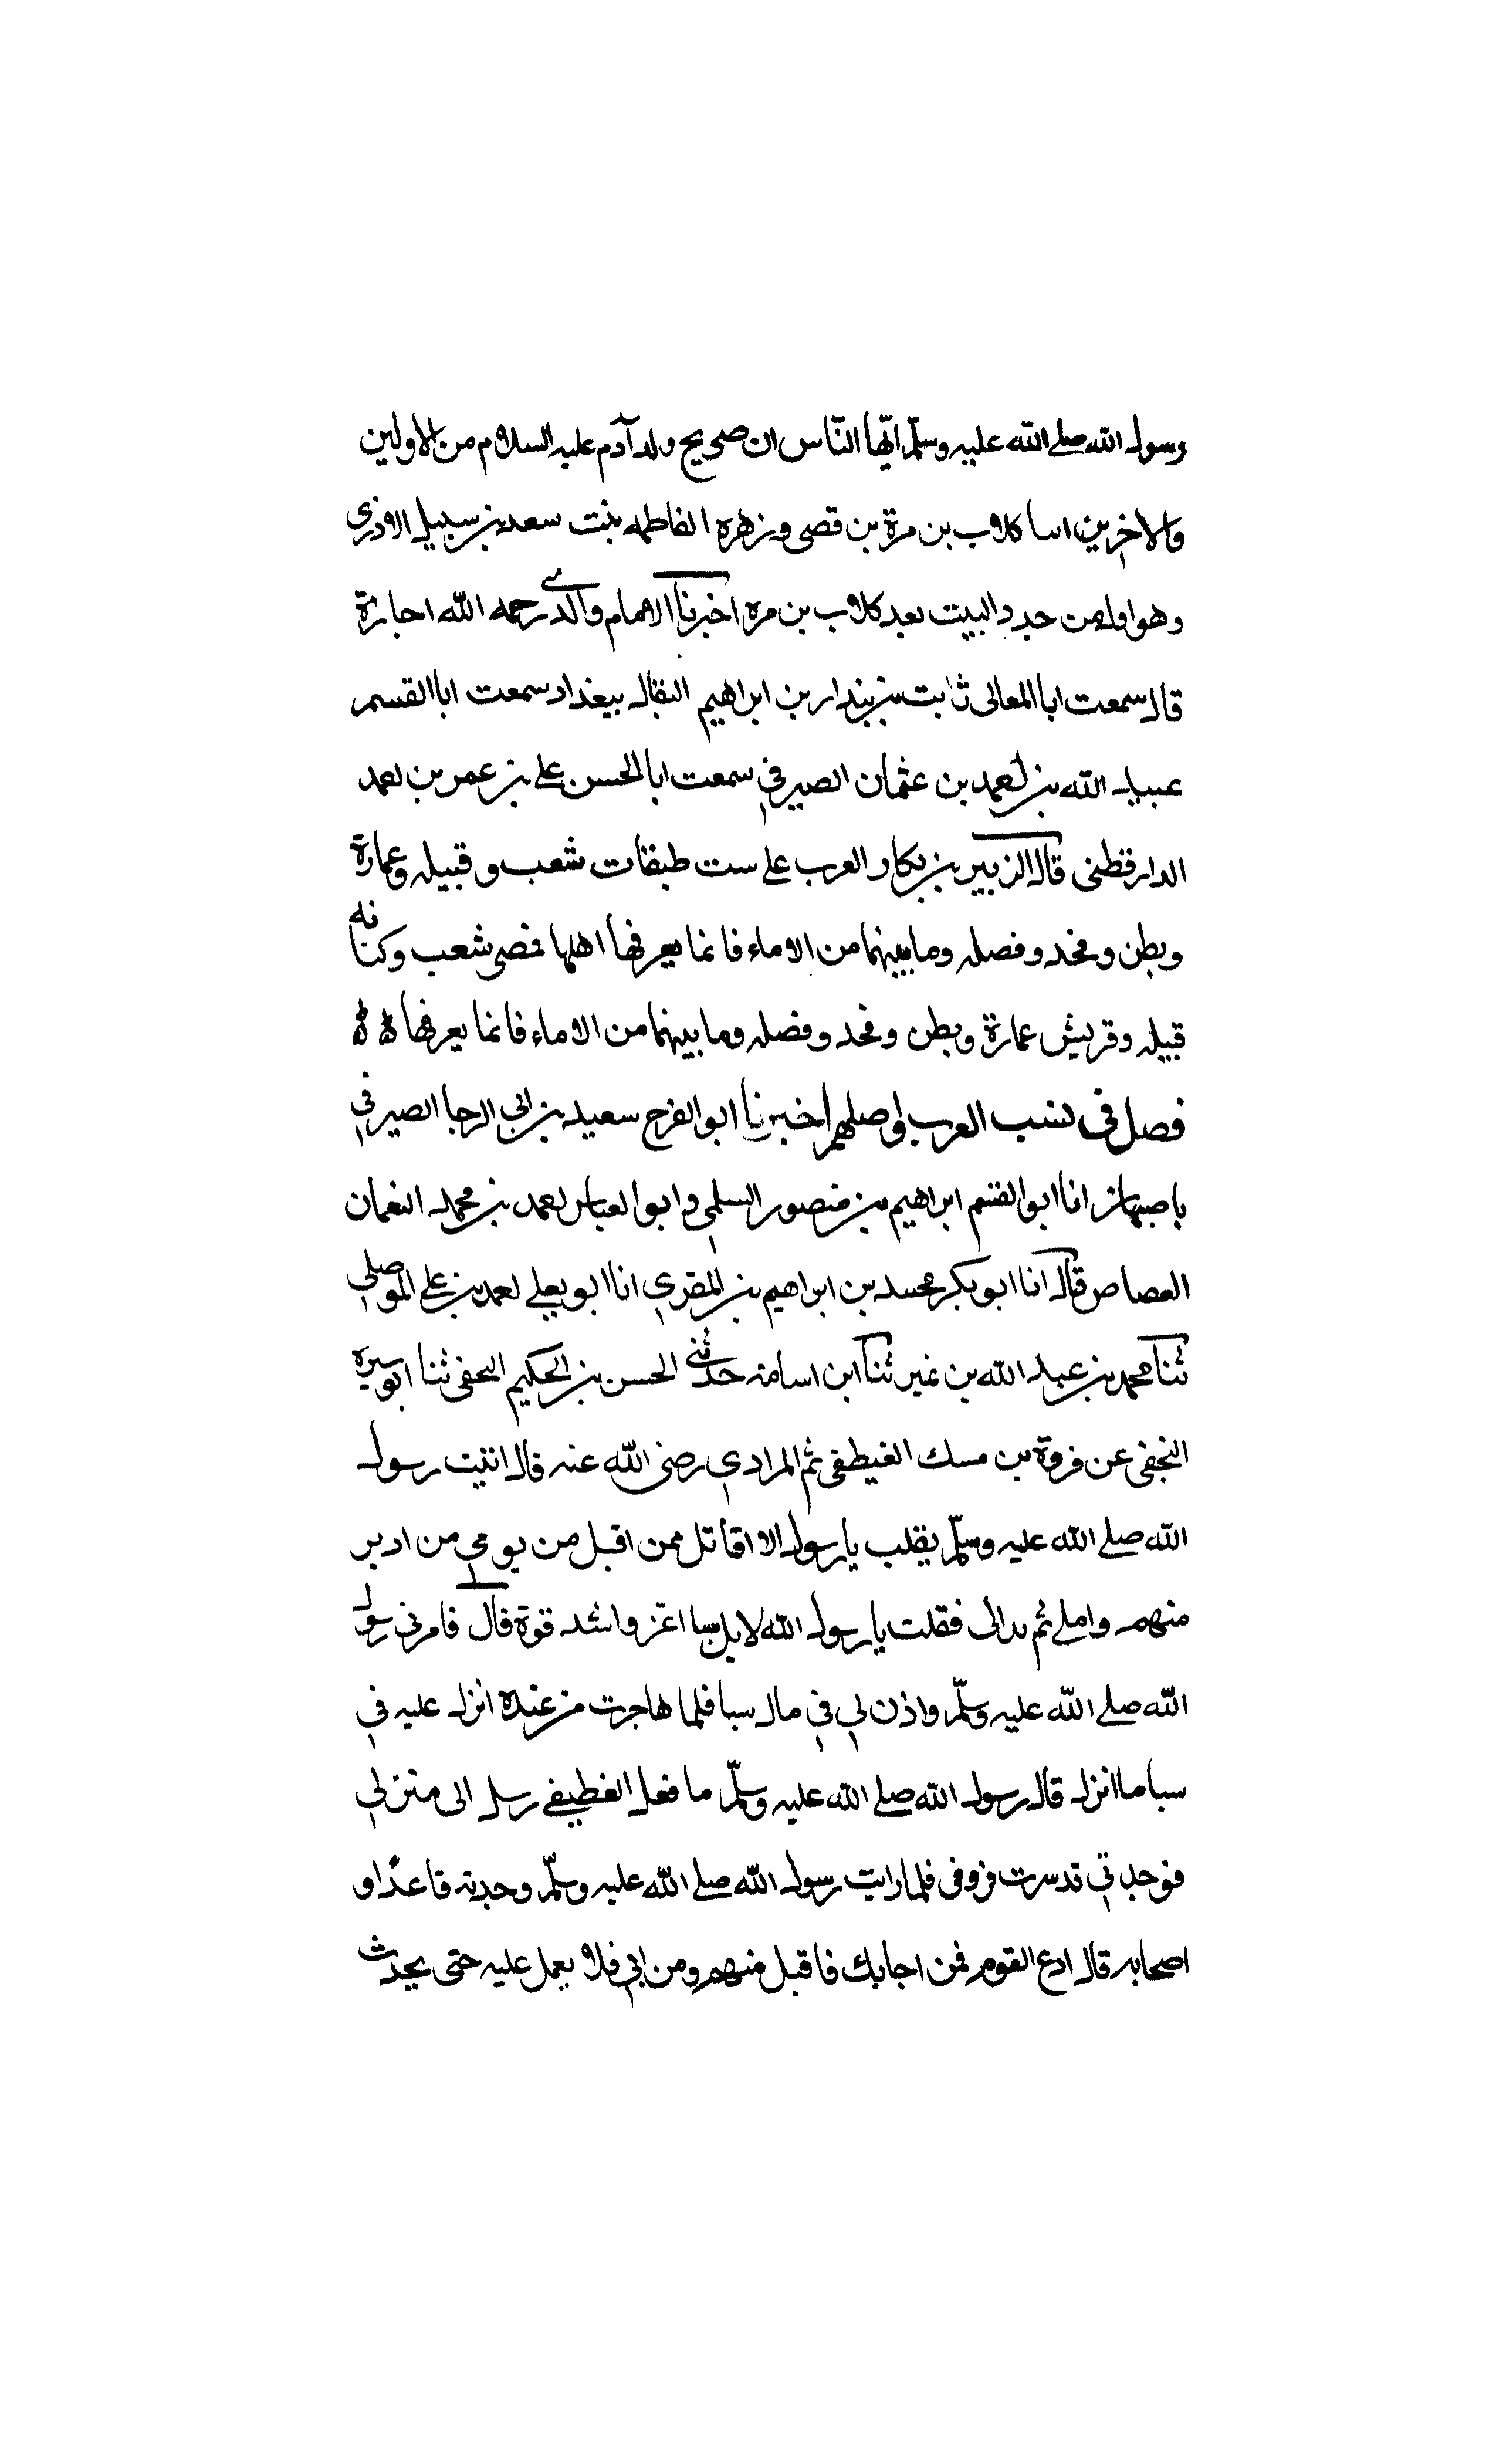 رسول الله صلى الله عليه وسلم ايّها النّاس ان صحيح ولد آدم عليه السلام من الاولين
والاخرين اسا كلاب بن مرة بن قصى وزهره الفاطمه بنت سعد بن سبيل الازدى
وهو اول من جدد البيت بعد كلاب بن مره اخبرنا الامام والدى رحمه الله اجازة
قال سمعت ابا المعالى ثابت بن بندار بن ابراهيم البقال ببغداد سمعت ابا القسم
عبيد الله بن احمد بن عثمان الصيرفي سمعت ابا الحسن على بن عمر بن احمد
الدارقطنى قال الزبير بن بكار العرب على ست طبقات شعب وقبيله وعمارة
وبطن وفخد وفصله وما بينهما من الاماء فانما يعرفها اهلها فمضى شعب وكنانه
قبيله وقريش عمارة وبطن وفخد وفصله وما بينهما من الاماء فانما يعرفها
فصل فى نسب العرب واصلهم اخبرنا ابو الفرج سعيد بن ابى الرجا الصيرفي
باصبهان انا ابو القسم ابراهيم بن منصور السلمي وابو العباس احمد بن محمد النعمان
العصاص قال انا ابو بكر محمد بن ابراهيم بن المقري انا ابو يعلي احمد بن على الموصلي
ثنا محمد بن عبد الله بن نمير ثنا ابن اسامة حدثنى الحسن بن الحكيم النجفى ثنا ابو سبره
النجفى عن فروة بن مسك الغيطفى ثم المرادي رضى الله عنه قال اتيت رسول
الله صلى الله عليه وسلّم يقلب يا رسول الا اقاتل ممن اقبل من يومي من ادبر
منهم واملى ثم بدالى فقلت يا رسول الله لا بل سبا اعز واشد قوة قال فامرنى رسول
الله صلى الله عليه وسلّم واذن لي في مال سبا فلما هاجرت من عنده انزل عليه في
سبا ما انزل قال رسول الله صلى الله عليه وسلّم ما فعل الغطيفى رسل الى منزلي
فوجدني قد سرت فروفى فلما رايت رسول الله صلى الله عليه وسلّم وجدته قاعدًا و
اصحابه قال ادع القوم فمن اجابك فاقبل منهم ومن ابي فلا يعمل عليه حتى يحدث